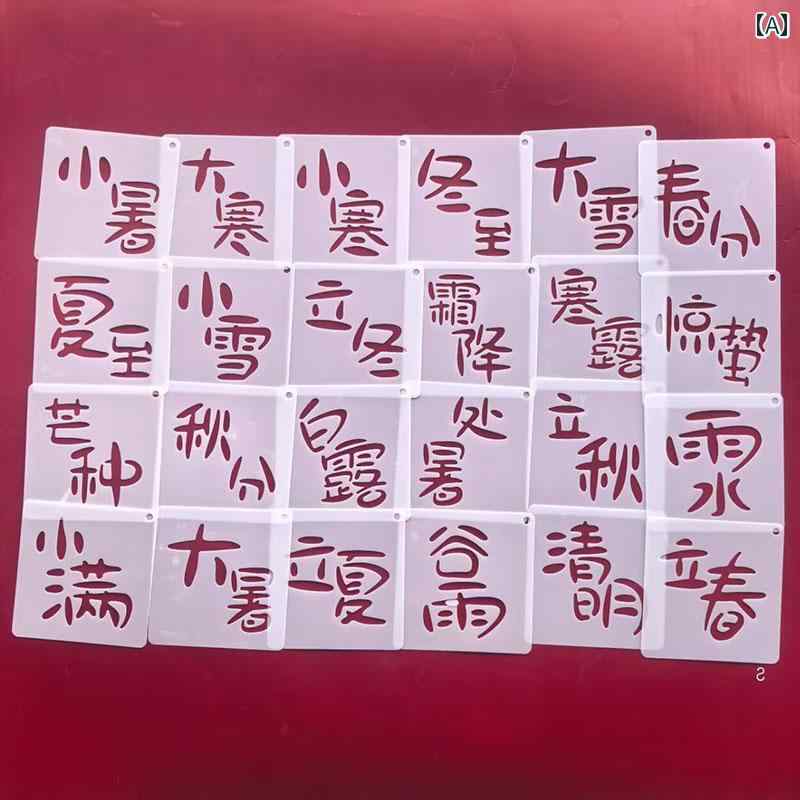 【A】
小暑
大寒
小寒
冬至
大雪
春分
夏至
小雪
立冬
霜降
寒露
惊蛰
芒种
秋分
白露
处暑
立秋
雨水
小满
大暑
立夏
谷雨
清明
立春
S